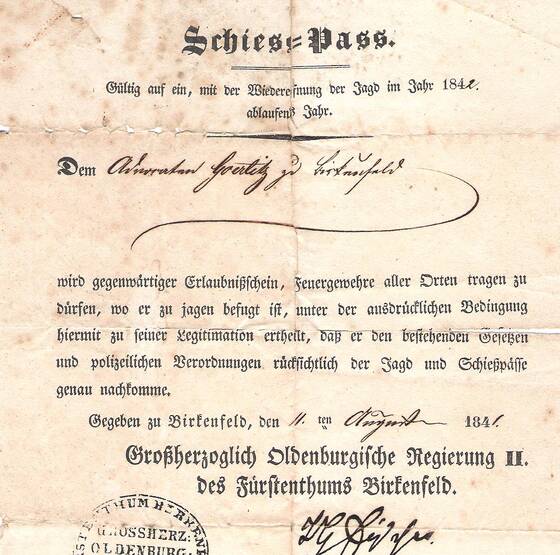 Schies=Pass.
Gültig auf ein, mit der Wiederöfnung der Jagd im Jahr 1842.
ablaufens Jahr.
Dem Advocaten Goerlitz zu Birkenfeld
wird gegenwärtiger Erlaubnißschein, Feuergewehre aller Orten tragen zu
dürfen, wo er zu jagen befugt ist, unter der ausdrücklichen Bedingung
hiermit zu seiner Legitimation ertheilt, daß er den bestehenden Gesetzen
und polizeilichen Verordnungen rücksichtlich der Jagd und Schießpässe
genau nachkomme.
Gegeben zu Birkenfeld, den 11. ten August 1841.
Großherzoglich Oldenburgische Regierung II.
des Fürstenthums Birkenfeld.
GROSSHERZ:
OLDENBURG.